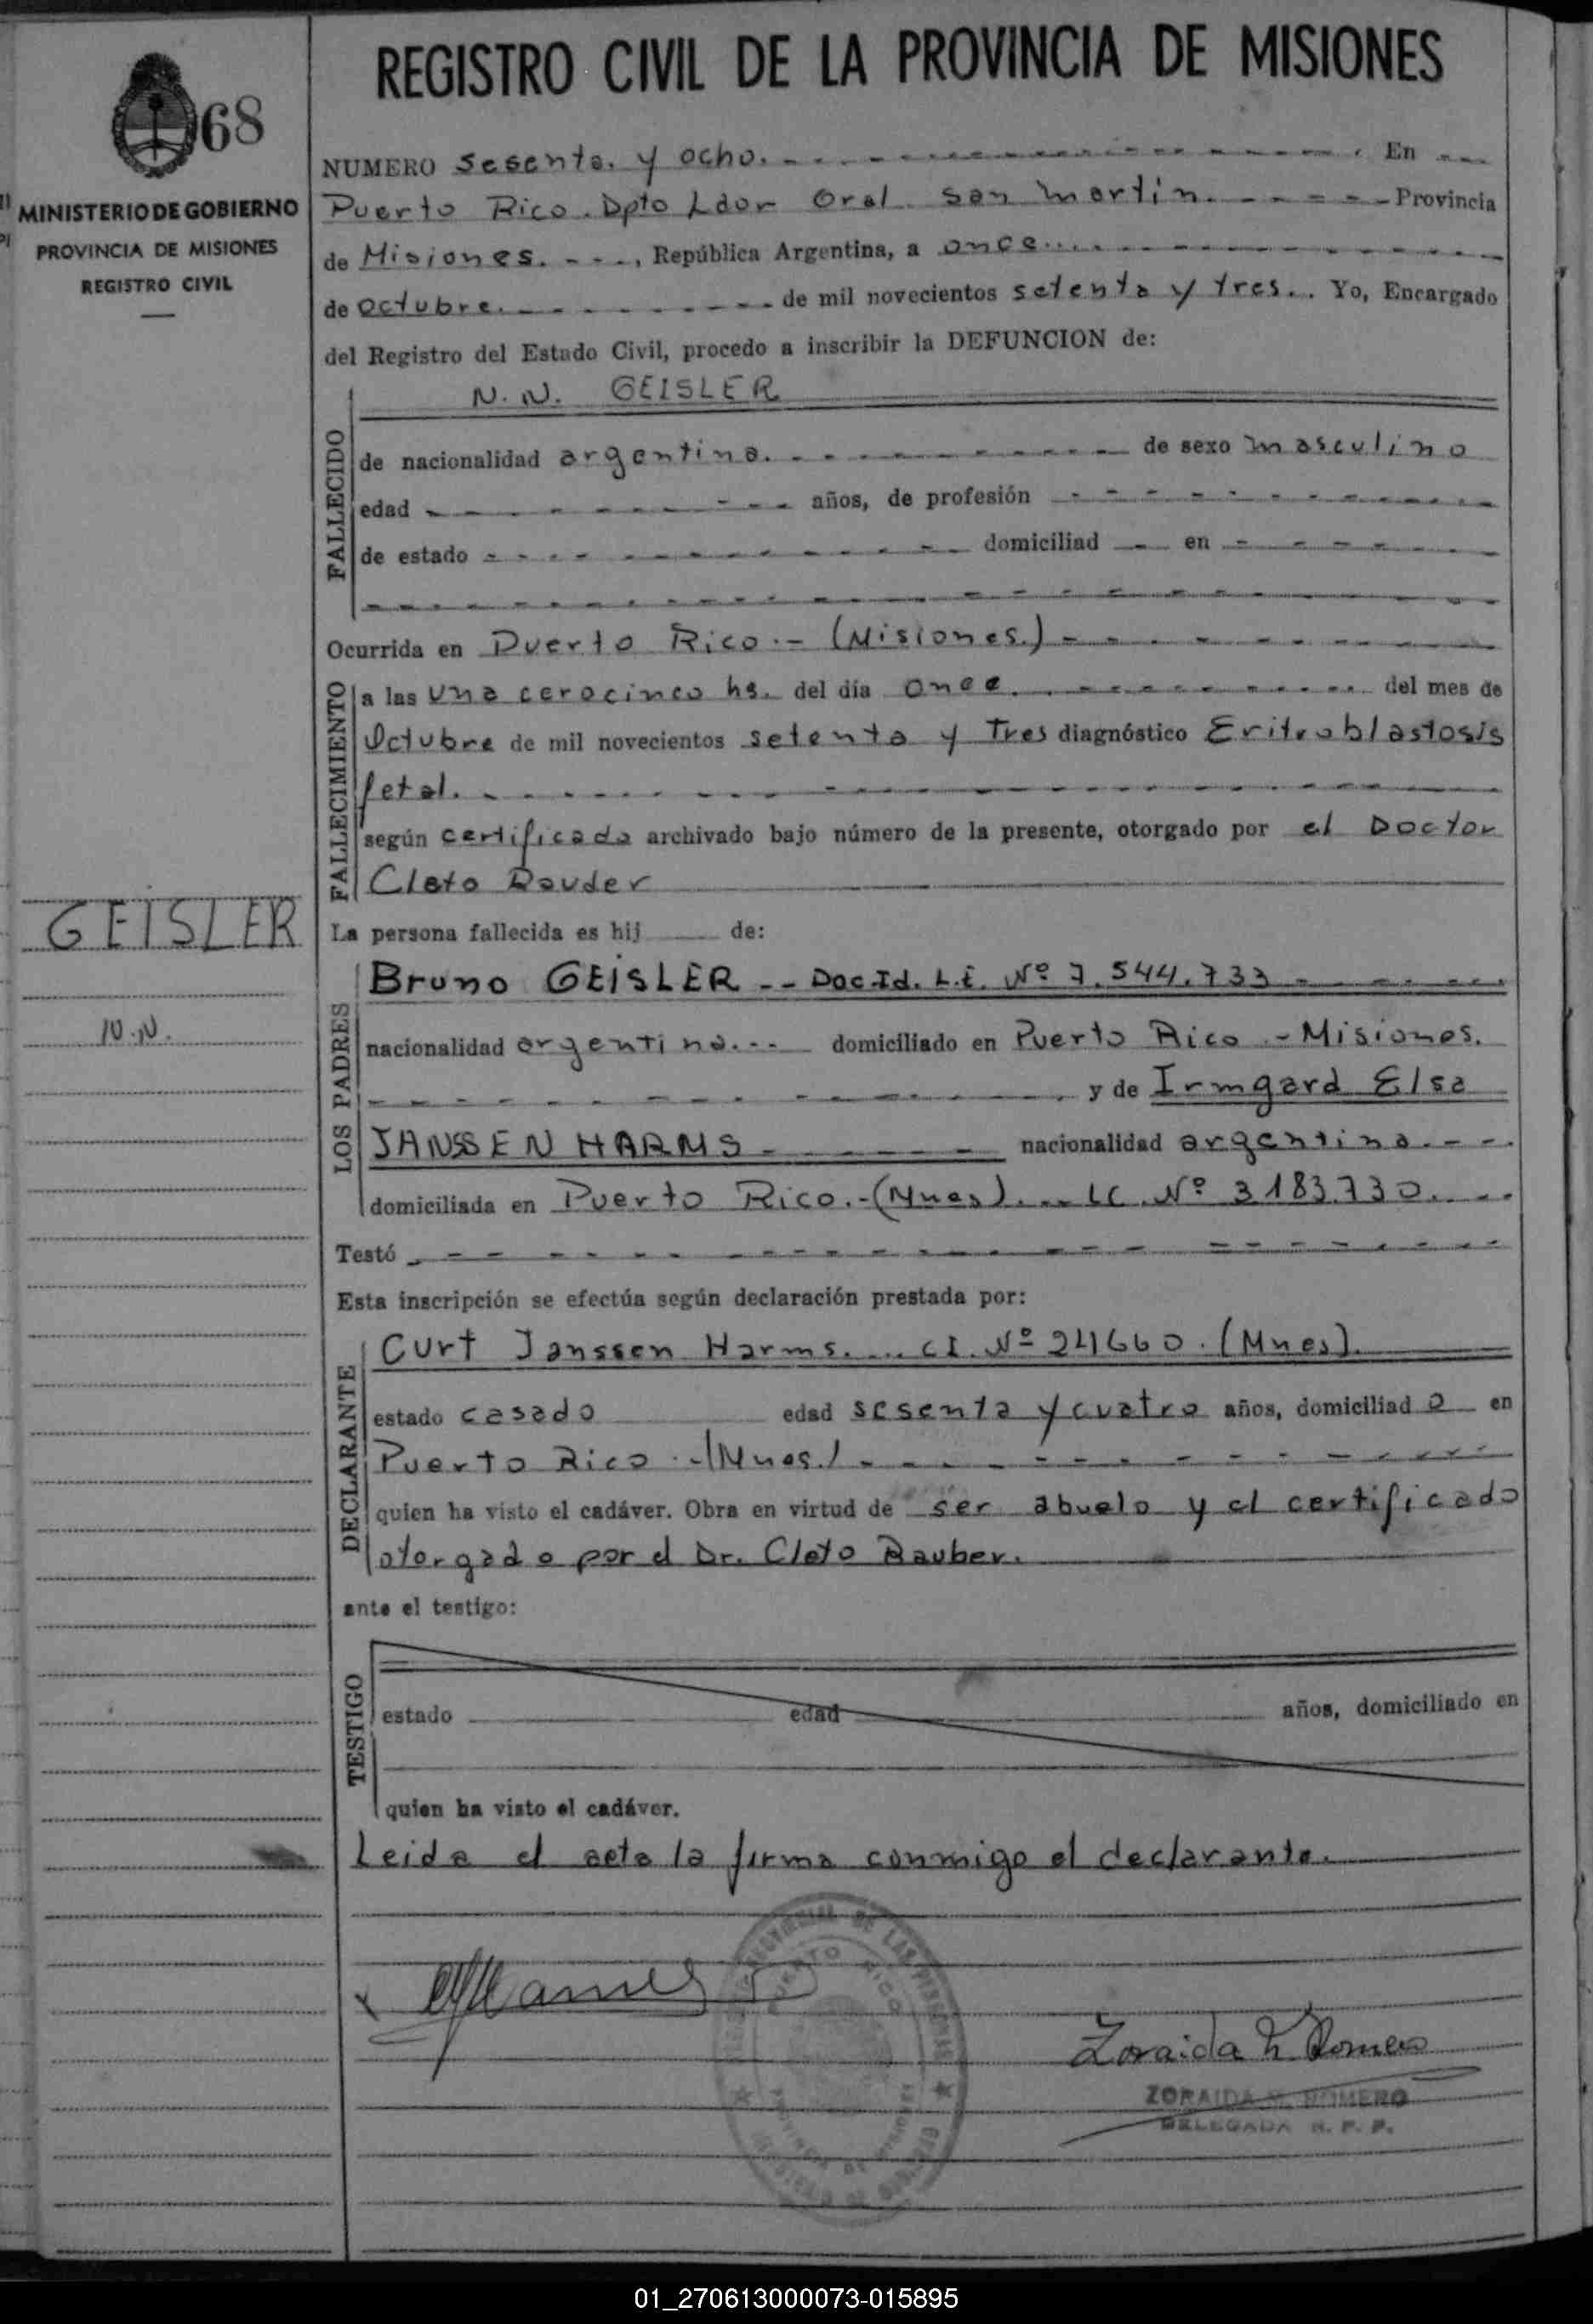 REGISTRO CIVIL DE LA PROVINCIA DE MISIONES
68
MINISTERIO DE GOBIERNO
PROVINCIA DE MISIONES
REGISTRO CIVIL
NUMERO sesenta y ocho. En
Puerto Rico. Dpto Ldor Gral. San Martín. Provincia
de Misiones. , República Argentina, a once
de octubre. de mil novecientos setenta y tres. Yo, Encargado
del Registro del Estado Civil, procedo a inscribir la DEFUNCION de:
N. N. GEISLER
FALLECIDO
de nacionalidad argentina. de sexo masculino
edad años, de profesión
de estado domiciliad en
Ocurrida en Puerto Rico.- (Misiones.)
FALLECIMIENTO
a las una cerocinco hs. del día once. del mes de
Octubre de mil novecientos setenta y Tres diagnóstico Eritroblastosis
fetal.
según certificado archivado bajo número de la presente, otorgado por el Doctor
Cleto Rauder
GEISLER
N.N.
La persona fallecida es hij de:
LOS PADRES
Bruno GEISLER -- Doc. Id. L.E. Nº 7.544.733
nacionalidad argentina.-- domiciliado en Puerto Rico - Misiones.
y de Irmgard Elsa
JANSSEN HARMS nacionalidad argentina.
domiciliada en Puerto Rico.-(Mnes). LC. Nº 3183.730.
Testó
Esta inscripción se efectúa según declaración prestada por:
DECLARANTE
Curt Janssen Harms. C.I. Nº 24660. (Mnes).
estado casado edad sesenta y cuatro años, domiciliad o en
Puerto Rico.-(Mnes.)
quien ha visto el cadáver. Obra en virtud de ser abuelo y el certificado
otorgado por el Dr. Cleto Rauber.
ante el testigo:
TESTIGO
estado edad años, domiciliado en
quien ha visto el cadáver.
Leida el acta la firma conmigo el declarante.
PUERTO RICO
Zoraida Romero
ZORAIDA ROMERO
DELEGADA R. P. P.
01_270613000073-015895